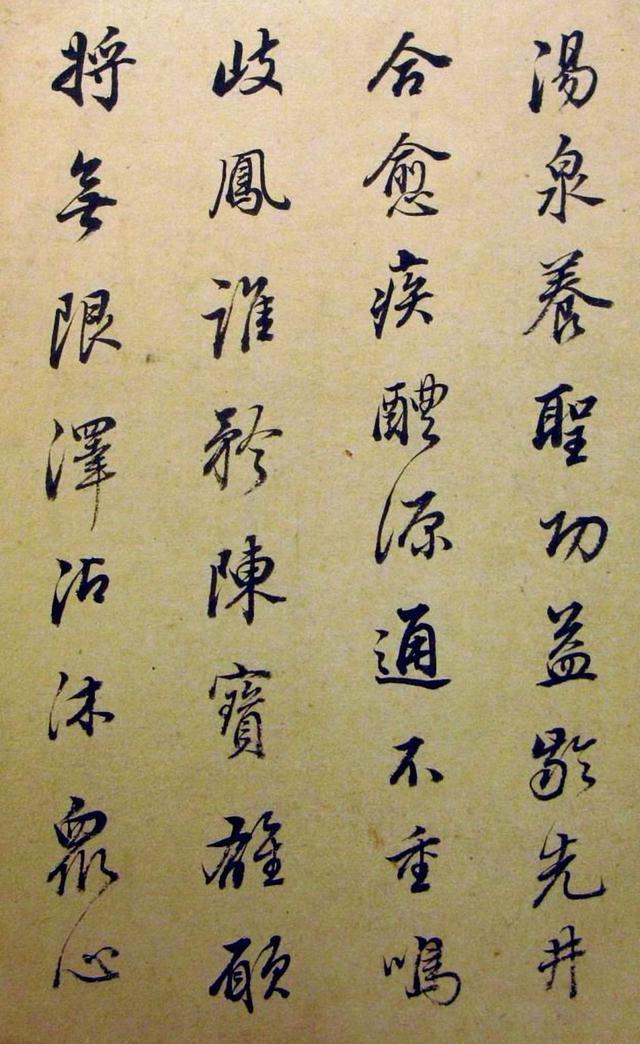 湯泉養聖功益齡先井
合愈疾醴源通不重鳴
岐鳳誰矜陳寶雄願
將無限澤沾沐衆心